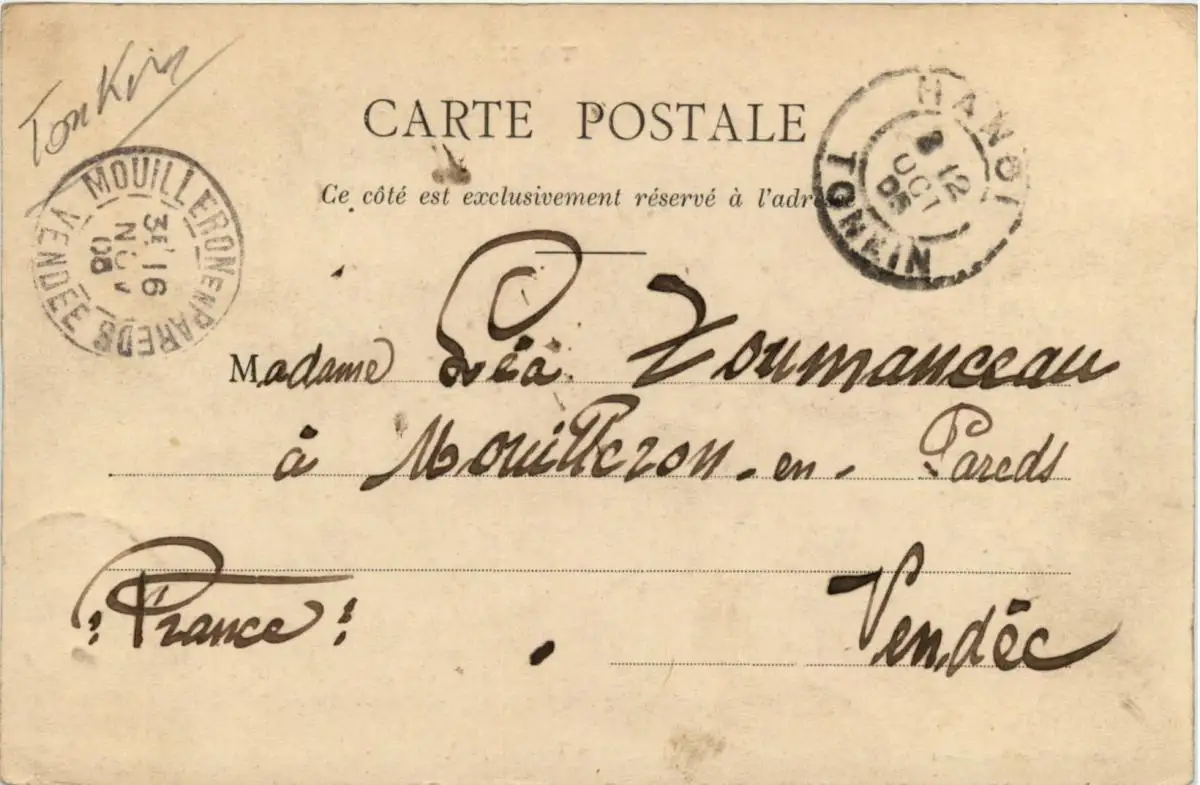 Tonkin
CARTE POSTALE
Ce côté est exclusivement réservé à l'adre
HANOI
12
OCT
TONKIN
MOUILLERON EN PAREDS
3E/16
NOV
08
VENDÉE
Madame Léa
à Mouilleron-en-Pareds
France
Vendée